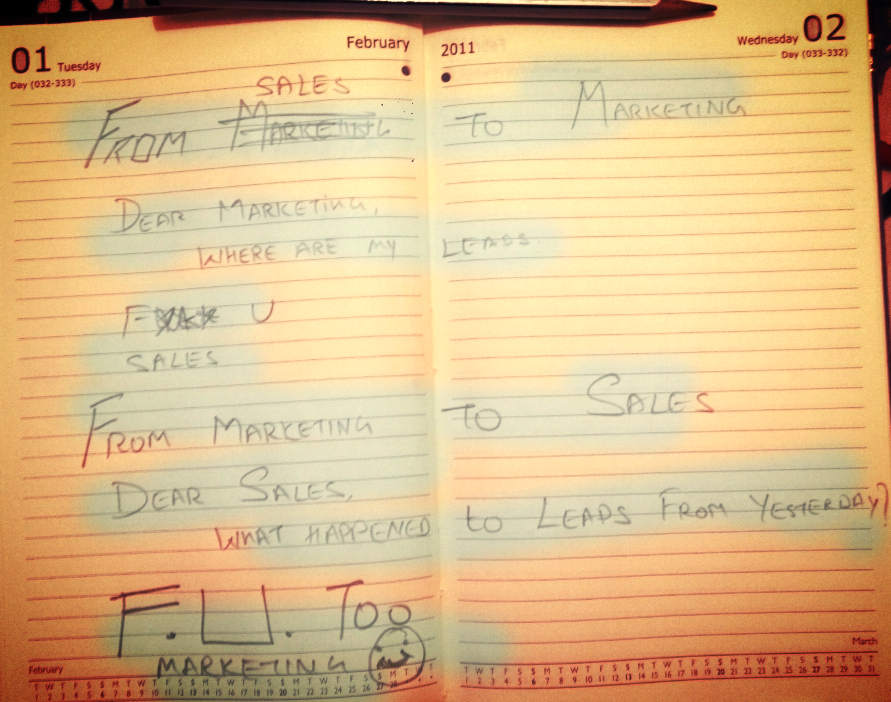 01 Tuesday
Day (032-333)
February
2011
Wednesday 02
Day (033-332)
SALES
FROM MARKETING TO MARKETING
DEAR MARKETING,
WHERE ARE MY LEADS
U
SALES
FROM MARKETING TO SALES
DEAR SALES,
WHAT HAPPENED to LEADS FROM YESTERDAY?
F.U. Too
MARKETING
February
T W T F S S M T W T F S S M T W T F S S M T W T F S S M
1 2 3 4 5 6 7 8 9 10 11 12 13 14 15 16 17 18 19 20 21 22 23 24 25 26 27 28
March
T W T F S S M T W T F S S M T W T F S S M T W T F S S M T W T
1 2 3 4 5 6 7 8 9 10 11 12 13 14 15 16 17 18 19 20 21 22 23 24 25 26 27 28 29 30 31